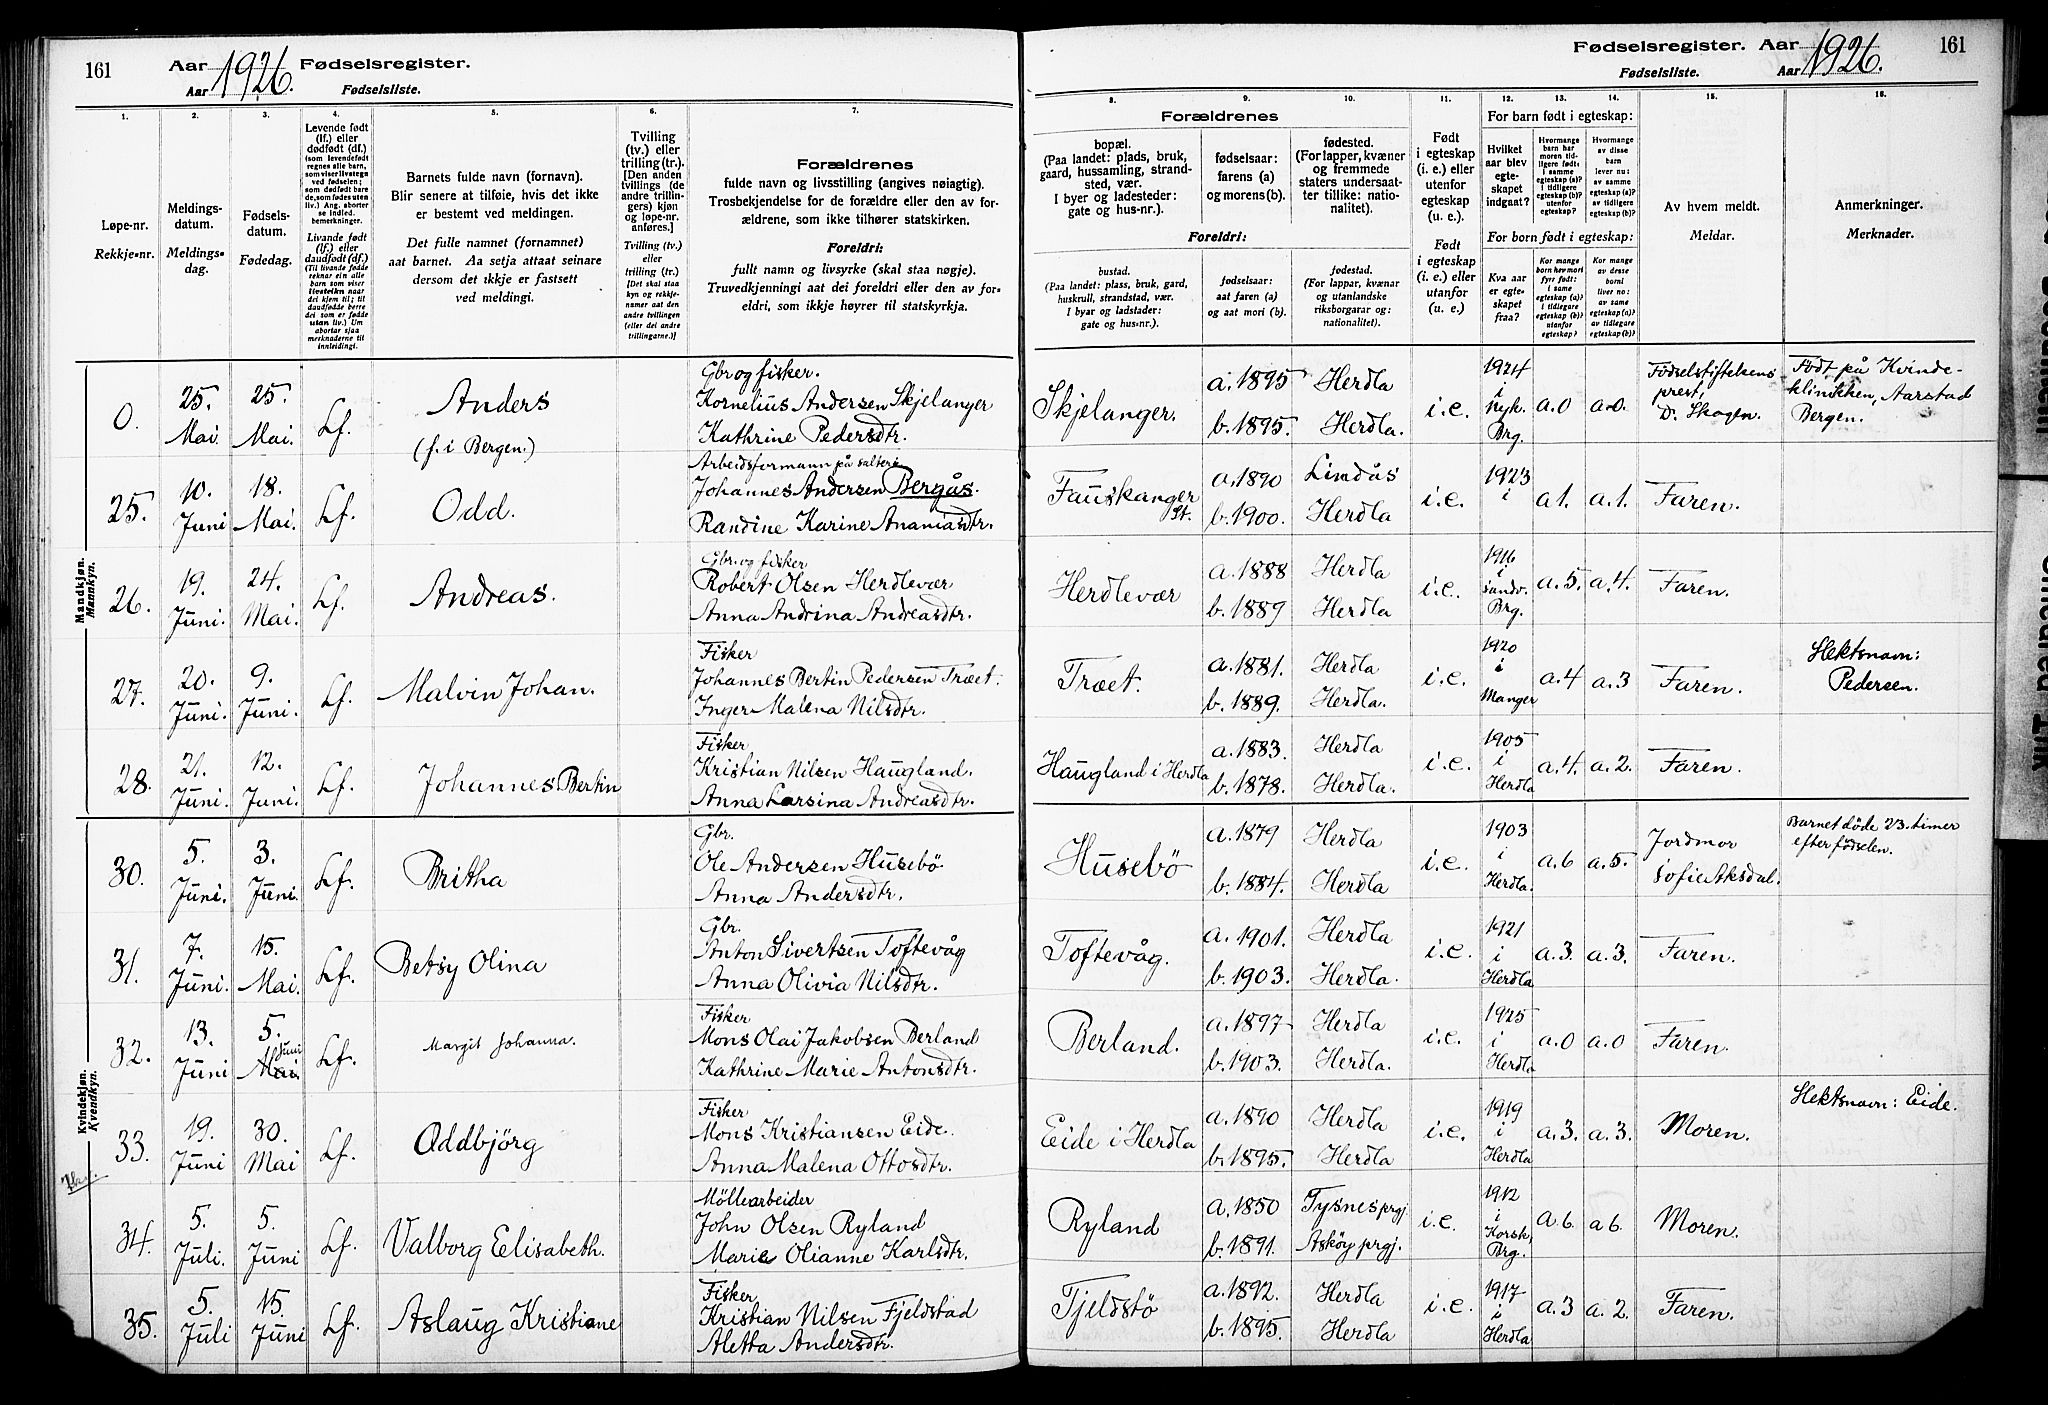 161
Aar 1926. Fødselsregister.
Aar Fødselsliste.
Fødselsregister. Aar 1926.
161
Fødselsliste. Aar
1.
2.
3.
4.
5.
6.
7.
Løpe-nr.
Rekkje-nr.
Meldings-
datum.
Meldings-
dag.
Fødsels-
datum.
Fødedag.
Levende født
(lf.) eller
dødfødt (df.)
Livande født
(lf.) eller
daudfødt (df.)
Barnets fulde navn (fornavn).
Blir senere at tilføie, hvis det ikke
er bestemt ved meldingen.
Det fulle namnet (fornamnet)
aat barnet. Aa setja attaat seinare
dersom det ikkje er fastsett
ved meldingi.
Tvilling
(tv.) eller
trilling (tr.).
[Den anden
tvillings (de
andre trillin-
gers) kjøn
og løpe-nr.
anføres.]
Tvilling (tv.)
eller
trilling (tr.)
[Det skal staa
kyn og rekkje-
numer aat den
andre tvillingen
(eller dei andre
trillingarne.)]
Forældrenes
fulde navn og livsstilling (angives nøiagtig).
Trosbekjendelse for de forældre eller den av for-
ældrene, som ikke tilhører statskirken.
Foreldri:
fullt namn og livsyrke (skal staa nøgje).
Truvedkjenningi aat dei foreldri eller den av for-
eldri, som ikkje høyrer til statskyrkja.
8.
9.
10.
11.
12.
13.
14.
15.
16.
Forældrenes
bopæl.
(Paa landet: plads, bruk,
gaard, hussamling, strand-
sted, vær.
I byer og ladesteder:
gate og hus-nr.).
fødselsaar:
farens (a)
og morens (b).
fødested.
(For lapper, kvæner
og fremmede
staters undersaat-
ter tillike: natio-
nalitet).
Foreldri:
bustad.
(Paa landet: plass, bruk, gard,
huskrull, strandstad, vær.
I byar og ladstader:
gate og hus-nr.).
fødselsaar:
aat faren (a)
og aat mori (b).
fødestad.
(For lappar, kvænar
og utanlandske
riksborgarar og:
nationalitet).
Født
i egteskap
(i. e.) eller
utenfor
egteskap
(u. e.).
Født
i egteskap
(i. e.) eller
utanfor
(u. e.).
For barn født i egteskap:
Hvilket
aar blev
egte-
skapet
indgaat?
For born født i egteskap:
Kva aar
er egte-
skapet
fraa?
Av hvem meldt.
Meldar.
Anmerkninger.
Merknader.
Mandkjøn.
Mannkyn.
0.
25. Mai.
25. Mai.
Lf.
Anders
(f. i Bergen.)
Gbr og fisker.
Kornelius Andersen Skjelanger
Kathrine Pedersdtr.
Skjelanger.
a. 1895 Herdla
b. 1895. Herdla.
i.e.
1924
i
Nyk.
Brg.
a.0
a.0.
Fødselstiftelsens
prest,
D. Skogen.
Født på Kvinde-
klinikken, Aarstad
Bergen.
25.
10. Juni
18. Mai.
Lf.
Odd.
Arbeidsformann på salteri
Johannes Andersen Bergås.
Randine Karine Ananiasdtr.
Fauskanger
St.
a. 1890 Lindås
b. 1900. Herdla
i.e.
1923
i
a 1.
a. 1.
Faren.
26.
19. Juni.
24. Mai.
Lf.
Andreas.
Gbr. og fisker
Robert Olsen Herdlevær
Anna Andrina Andreasdtr.
Herdlevær
a. 1888 Herdla
b. 1889 Herdla
i.e.
1916
i
Sandv.
Brg.
a. 5.
a. 4.
Faren.
27.
20. Juni.
9. Juni.
Lf.
Malvin Johan.
Fisker
Johannes Bertin Pedersen Træet.
Inger Malena Nilsdtr.
Træet.
a. 1881. Herdla
b. 1889. Herdla.
i.e.
1920
i
Manger
a. 4
a. 3
Faren.
Slektsnavn:
Pedersen.
28.
21. Juni.
12. Juni.
Lf.
Johannes Bertin
Fisker
Kristian Nilsen Haugland.
Anna Larsina Andreasdtr.
Haugland i Herdla
a. 1883. Herdla
b. 1878. Herdla.
i.e.
1905
i
Herdla
a. 4.
a. 2.
Faren.
Kvindekjøn.
Kvendkyn.
30.
5. Juni.
3. Juni.
Lf.
Britha
Gbr.
Ole Andersen Husebö
Anna Andersdtr.
Husebö
a. 1879 Herdla
b. 1884. Herdla
i.e.
1903
i
Herdla.
a. 6
a. 5.
Jordmor
Sofie Aksdal.
Barnet døde 23 timer
efter fødselen.
31.
7. Juni.
15. Mai.
Lf.
Betsy Olina
Gbr.
Anton Sivertsen Toftevåg
Anna Olivia Nilsdtr.
Toftevåg.
a. 1901. Herdla
b. 1903. Herdla.
i.e.
1921
i
Herdla
a. 3.
a. 3.
Faren.
32.
13. Juni
5. Mai. Juni
Lf.
Margit Johanna.
Fisker
Mons Olai Jakobsen Berland
Kathrine Marie Antonsdtr.
Berland.
a. 1897 Herdla
b. 1903. Herdla.
i.e.
1925
i
Herdla
a. 0
a. 0
Faren.
33.
19. Juni
30. Mai
Lf.
Oddbjörg
Fisker
Mons Kristiansen Eide.
Anna Malena Ottosdtr.
Eide i Herdla
a. 1890 Herdla
b. 1895. Herdla
i.e.
1919
i
Herdla
a. 3.
a. 3.
Moren.
Slektsnavn: Eide.
34.
5. Juli.
5. Juni
Lf.
Valborg Elisabeth.
Möllearbeider
John Olsen Ryland
Marie Olianne Karlsdtr.
Ryland
a. 1850 Tysnes prgj
b. 1891. Askøy prgj.
i.e.
1912
i
Korsk.
Brg.
a. 6.
a 6.
Moren.
35.
5. Juli
15. Juni
Lf.
Aslaug Kristiane
Fisker
Kristian Nilsen Fjeldstad
Aletta Andersdtr.
Tjeldstö
a. 1892. Herdla
b. 1895. Herdla
i.e.
1917
i
Herdla
a. 3
a. 2.
Faren.